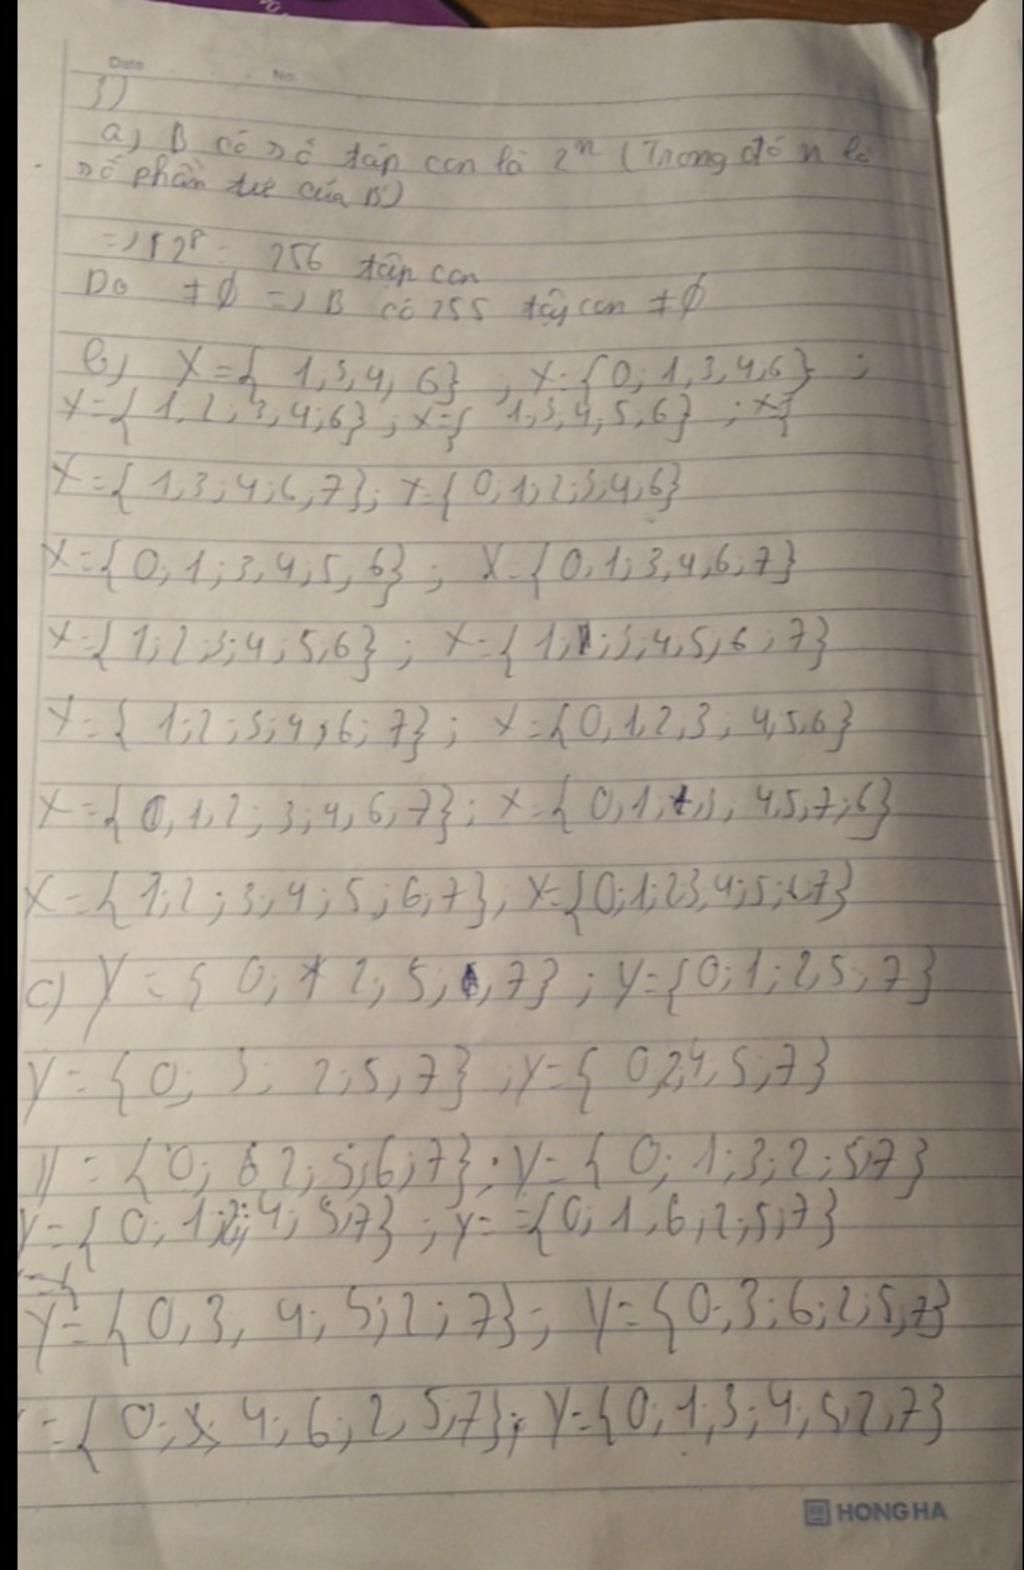 Date No.
3)
a) B có số tập con là 2ⁿ (Trong đó n là
số phần tử của B)
=> 2⁸ = 256 tập con
Do ≠ ∅ => B có 255 tập con ≠ ∅
b) X = { 1; 3, 4, 6} , X = {0, 1, 3, 4, 6} ;
X = { 1, 2; 3, 4; 6} ; X = { 1; 3, 4; 5, 6} ; X {
X = { 1, 3; 4; 6, 7}; X = { 0, 1; 2; 3, 4, 6}
X = { 0, 1; 3, 4, 5, 6} ; X = { 0, 1; 3, 4, 6; 7}
X = { 1; 2; 3; 4; 5, 6} ; X = { 1, ; 3, 4, 5, 6; 7}
X = { 1; 2; 3; 4, 6; 7} ; X = {0, 1, 2, 3; 4, 5, 6}
X = {0, 1, 2; 3; 4, 6, 7}; X = { 0, 1, 3, 4, 5, 7; 6}
X = { 1; 2; 3; 4; 5; 6, 7}, X = {0; 1; 2 3, 4; 5; 6, 7}
c) Y = { 0; 2; 5; , 7} ; Y = {0; 1; 2, 5; 7}
Y = {0; 3; 2; 5, 7} ; Y = { 0, 2, 4, 5; 7}
Y = {0; 2; 5; 6, 7} ; Y = { 0; 1; 3; 2; 5, 7}
Y = { 0; 1; 2; 4; 5, 7} ; Y = = {0; 1, 6; 2; 5; 7}
Y = {0, 3, 4; 5; 2; 7}; Y = {0; 3; 6; 2; 5, 7}
= { 0; 4; 6; 2, 5, 7}; Y = {0; 1, 3; 4, 5, 2, 7}
HONG HA